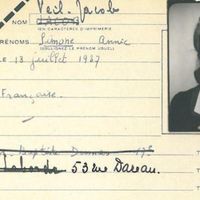 Veil-Jacob
NOM JACOB
(EN CARACTÈRES D'IMPRIMERIE
PRÉNOMS Simone Annie
(SOULIGNEZ LE PRÉNOM USUEL)
le 13 juillet 1927
Française.
53 rue Dareau.
T
T
T